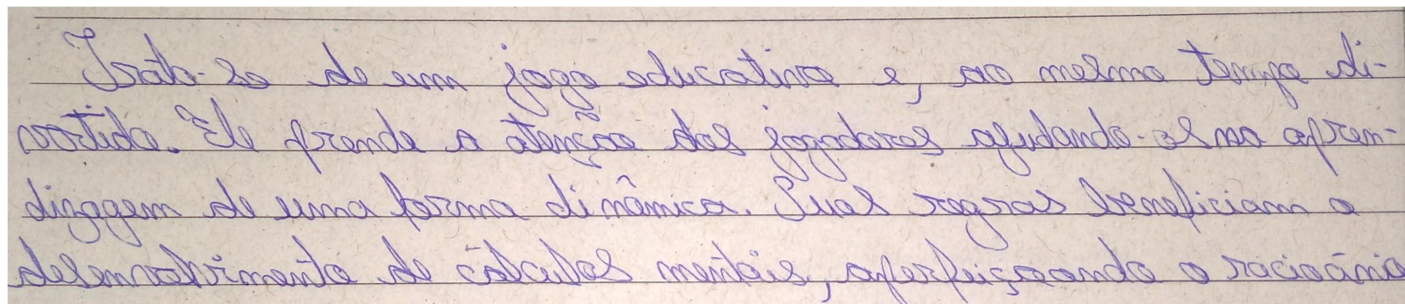 Trata-se de um jogo educativo e, ao mesmo tempo di-
vertido. Ele prende a atenção dos jogadores ajudando-os na apren-
dizagem de uma forma dinâmica. Suas regras beneficiam o
desenvolvimento de cálculos mentais, aperfeiçoando o raciocínio